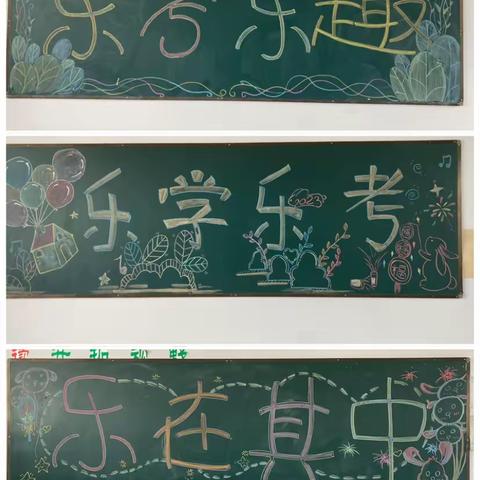 乐 乐趣
乐学乐考
2023
乐在其中